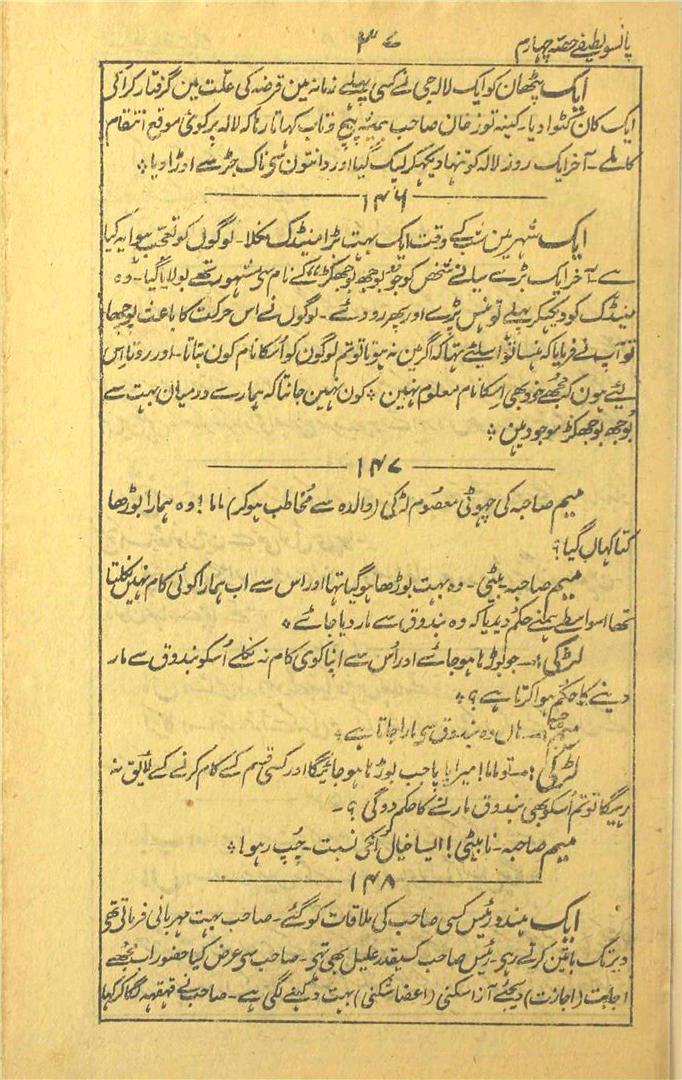 پانسو لطیفے حصہ چہارم
۳۷
ایک پٹھان کو ایک لالہ جی نے کسی پہلے زمانہ مین قرضہ کی علت مین گرفتار کرا کی
ایک کان کٹوا دیا۔ کینہ توز خان صاحب ہمیشہ پیچ و تاب کہاتا رہا کہ لالہ پر کوئی موقع انتقام
کا ملے۔ آخر ایک روز لالہ کو تنہا دیکھکر لپک گیا اور دانتون سی ناک جڑ سے اوڑا دیا ؞
۱۴۶
ایک شہر مین شب کے وقت ایک بہت بڑا مینڈک نکلا۔ لوگون کو تعجب ہوا یہ کیا
ہے۔ آخر ایک بڑے سیانے شخص کو جو "بوجھ بوجھکڑ" کے نام سی مشہور تھے بولایا گیا۔ وہ
مینڈک کو دیکھکر پہلے تو ہنس پڑے اور پھر رو دئے۔ لوگون نے اس حرکت کا باعث پوچھا
تو آپ نے فرمایا کہ ہنسا تو اسلیئے تہا کہ اگر مین نہ ہوتا تو تم لوگون کو اسکا نام کون بتاتا۔ اور روتا اس
لیئے ہون کہ مجھے خود بھی اسکا نام معلوم نہین ؞ کون نہین جانتا کہ ہمارے درمیان بہت سے
بوجھ بوجھکڑ موجود ہین ؞
۱۴۷
میم صاحبہ کی چھوٹی معصوم لڑکی (والدہ سے مخاطب ہوکر) ماما! وہ ہمارا بوڑھا
کتا کہاں گیا؟
میم صاحبہ۔ بیٹی۔ وہ بہت بوڑھا ہو گیا تہا اور اس سے اب ہمارا کوئی کام نہین نکلتا
تھا اسواسطے ہمنے حکم دیدیا کہ وہ بندوق سے مار دیا جائے ؞
لڑکی :۔ جو بوڑہا ہو جائے اور اُس سے اپنا کوئی کام نہ نکلے اُسکو بندوق سے مار
دینے کا حکم ہوا کرتا ہے؟ ؞
میم صاحبہ۔ ہاں وہ بندوق سی مارا جاتا ہے ؞
لڑکی :۔ تو ماما! میرا پاپا جب بوڑہا ہو جائیگا اور کسی قسم کے کام کرنے کے لایق نہ
رہیگا تو تم اُسکو بھی بندوق مارنے کا حکم دوگی؟۔
میم صاحبہ۔ نا بیٹی! ایسا خیال اُنکی نسبت۔ چُپ رہو! ؞
۱۴۸
ایک ہندو رئیس کسی صاحب کی ملاقات کو گئے۔ صاحب بہت مہربانی فرماتی تھی
دیر تک باتین کرتے رہی۔ رئیس صاحب کسیقدر علیل بھی تہی۔ صاحب سی عرض کیا حضور اب مجھے
اجابت (اجازت) دیجئے آزا سکنی (اعضا شکنی) بہت دیکھنے لگی ہے۔ صاحب نے قہقہہ لگا کر کہا